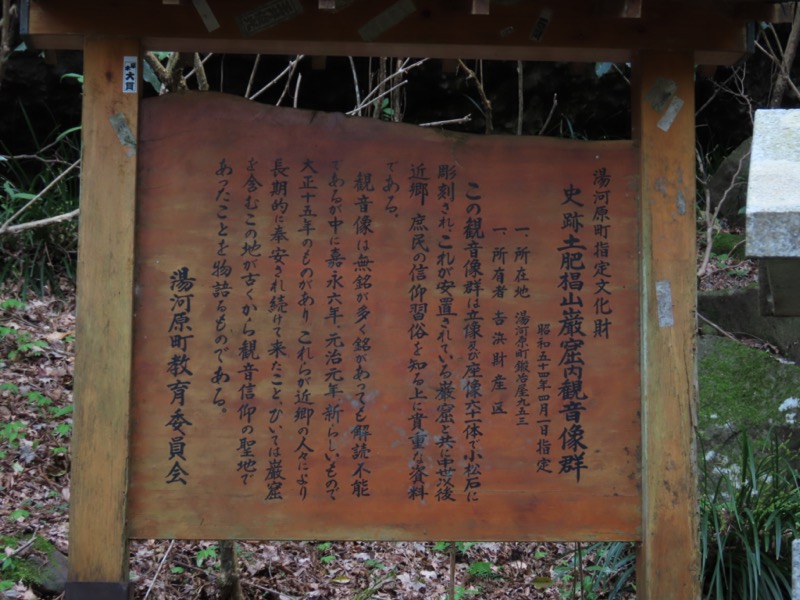 湯河原町指定文化財
史跡土肥椙山巌窟内観音像群
昭和五十四年四月一日指定
一、所在地 湯河原町鍛冶屋九五三
一、所有者 吉浜財産区
この観音像群は立像及び座像六十一体で小松石に
彫刻され、これが安置されている巌窟と共に中世以後
近郷 庶民の信仰習俗を知る上に貴重な資料
である。
観音像は無銘が多く銘があっても解読不能
であるが中に嘉永六年、元治元年、新らしいもので
大正十五年のものがあり これらが近郷の人々により
長期的に奉安され続けて来たこと ひいては巌窟
を含むこの地が古くから観音信仰の聖地で
あったことを物語るものである。
湯河原町教育委員会